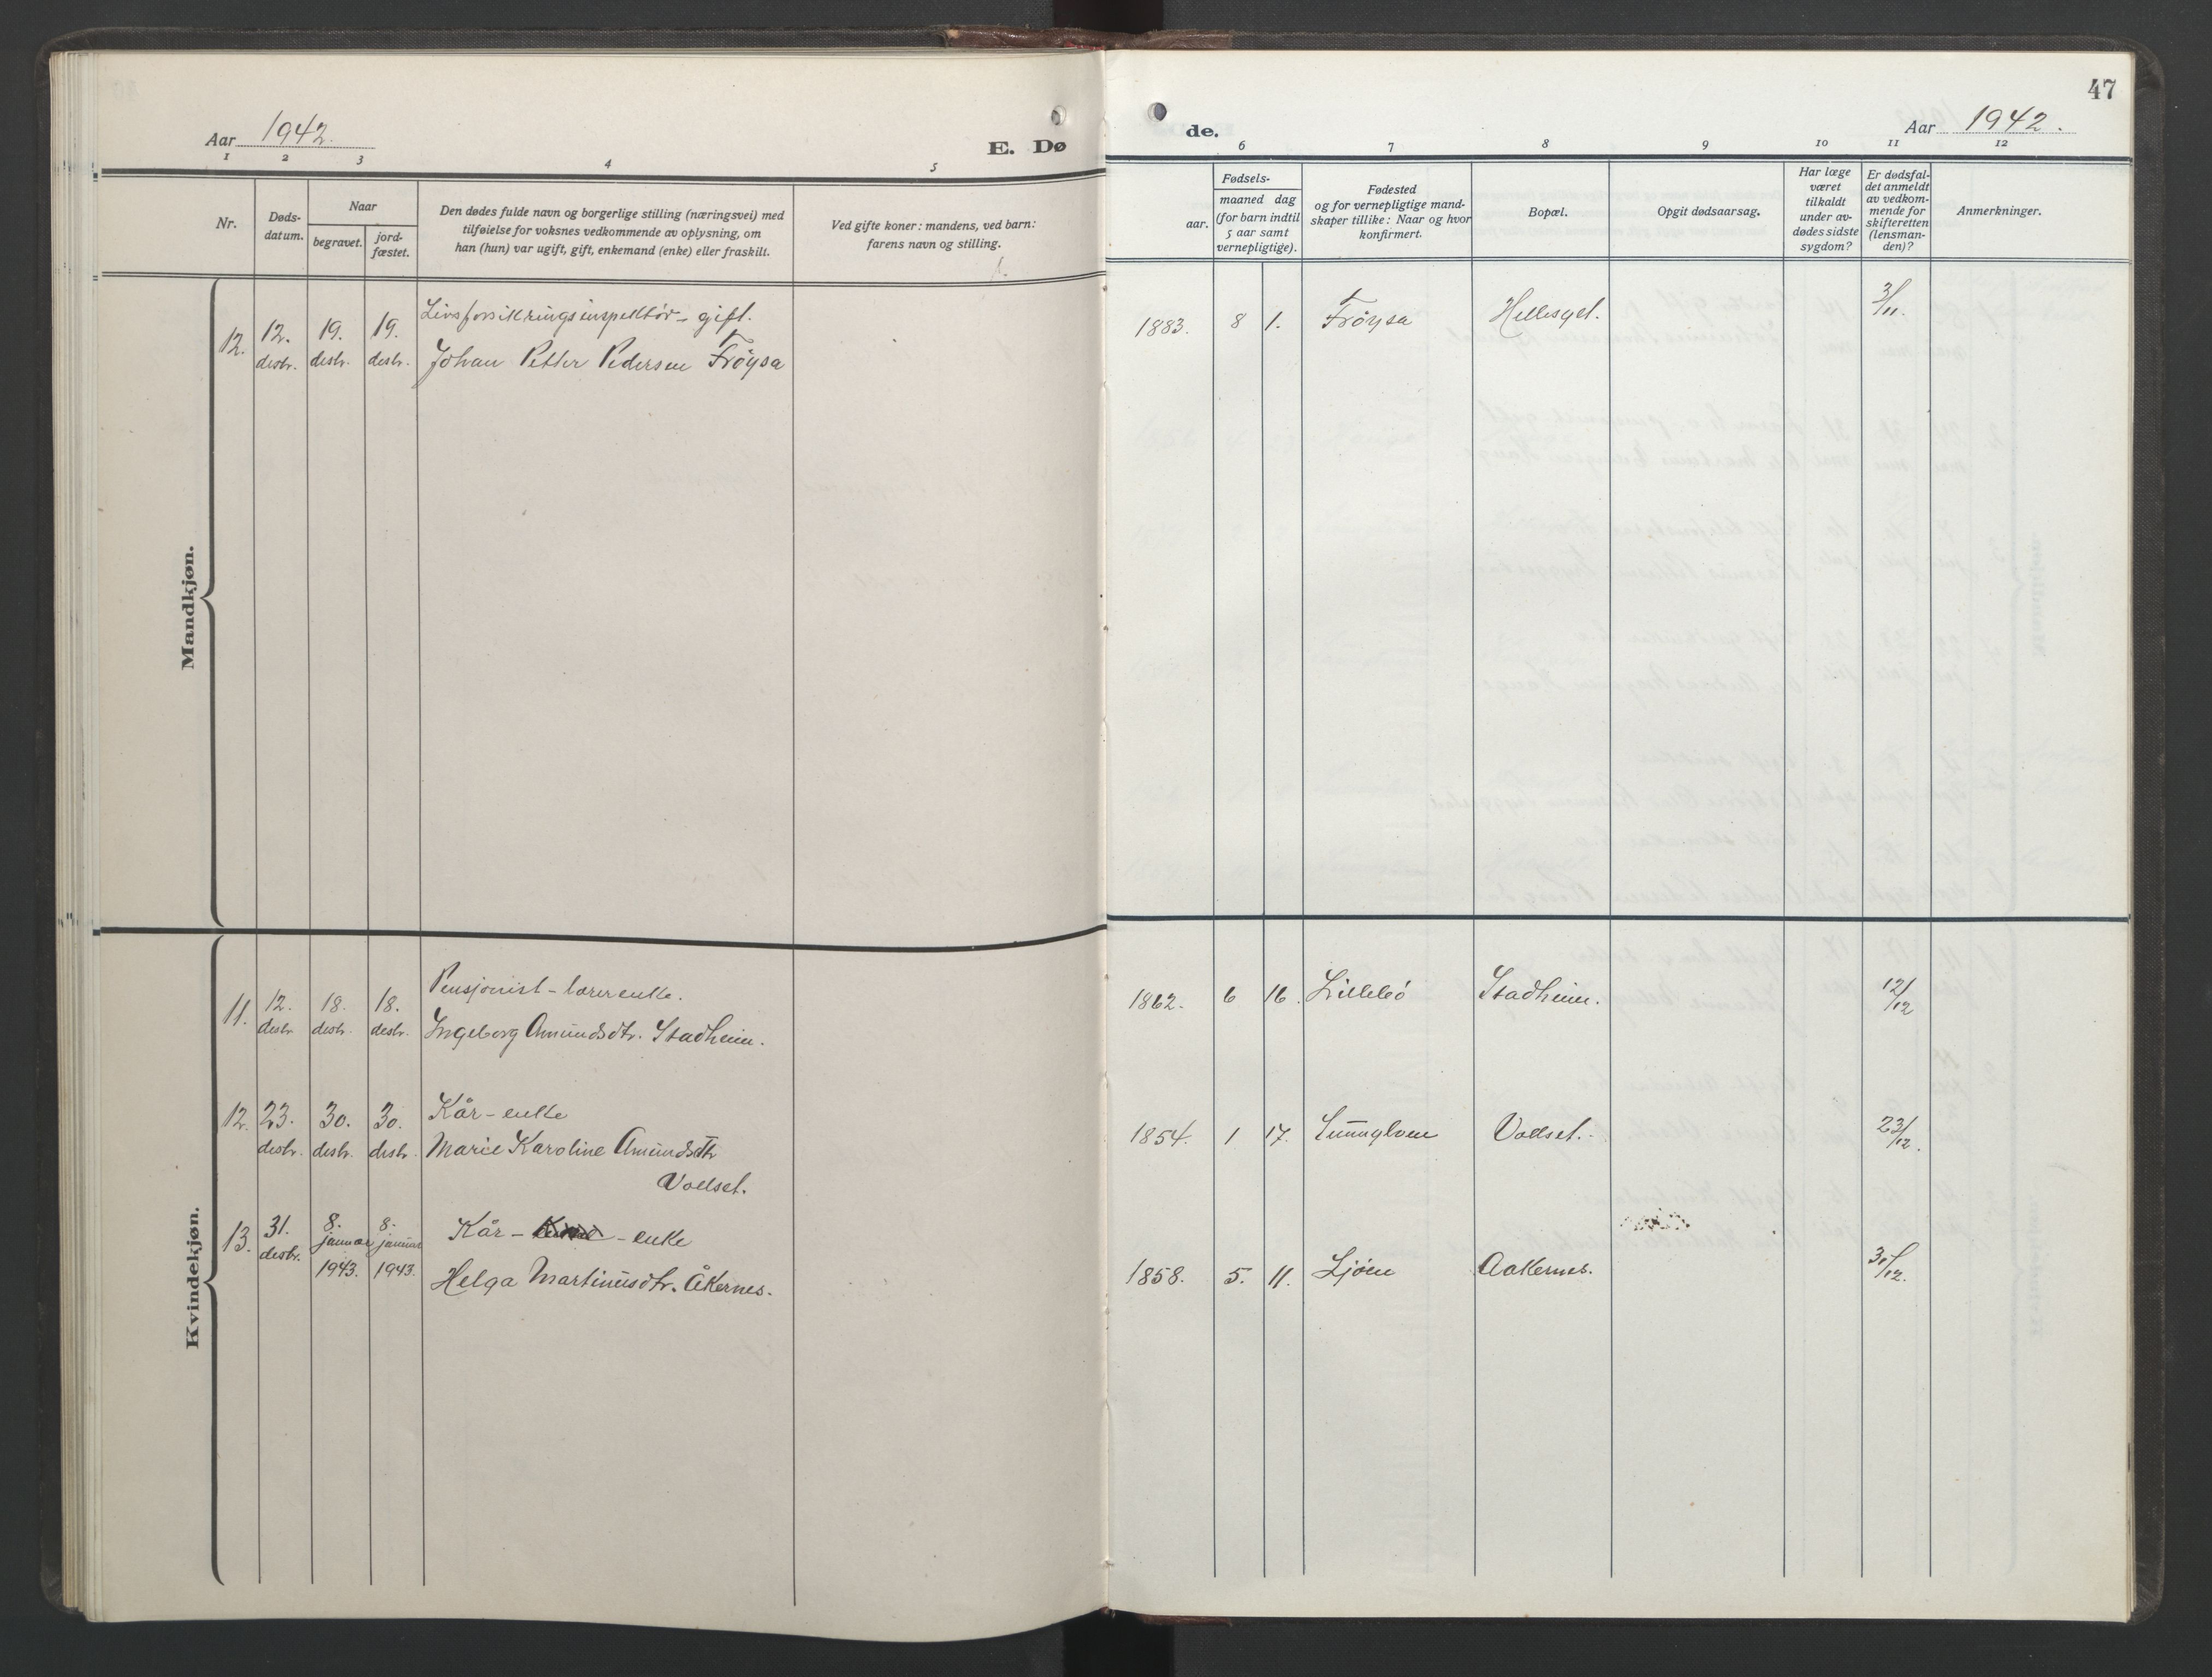 47
Aar 1942.
E. Dø
de.
Aar 1942.
1 2 3 4 5 6 7 8 9 10 11 12
Nr.
Døds-
datum.
Naar
begravet.
jord-
fæstet.
Den dødes fulde navn og borgerlige stilling (næringsvei) med
tilføielse for voksnes vedkommende av oplysning, om
han (hun) var ugift, gift, enkemand (enke) eller fraskilt.
Ved gifte koner: mandens, ved barn:
farens navn og stilling.
Fødsels-
aar.
maaned dag
(for barn indtil
5 aar samt
vernepligtige).
Fødested
og for vernepligtige mand-
skaper tillike: Naar og hvor
konfirmert.
Bopæl.
Opgit dødsaarsag.
Har læge
været
tilkaldt
under av-
dødes sidste
sygdom?
Er dødsfal-
det anmeldt
av vedkom-
mende for
skifteretten
(lensman-
den)?
Anmerkninger.
Mandkjøn.
Livsforsikringsinspektör - gift.
12. 12. 19. 19. 1883. 8 1. Fröysa Hellesylt. 3/11.
desbr. desbr. desbr. Johan Petter Pedersen Fröysa
Kvindekjøn.
Pensjonist - lærerenke.
11. 12. 18. 18. 1862. 6 16. Lillebö Stadheim. 12/12
desbr. desbr. desbr. Ingeborg Amundsdtr. Stadheim.
12. 23. 30. 30. Kår - enke 1854. 1 17. Sunnylven Vollset. 23/12.
desbr. desbr. desbr. Marie Karoline Amundsdtr
Vollset.
13. 31. 8. 8. Kår - - enke
desbr. januar januar
1943. 1943. Helga Martinusdtr. Åkernes. 1858. 5. 11. Ljöen Aakernes. 31/12.